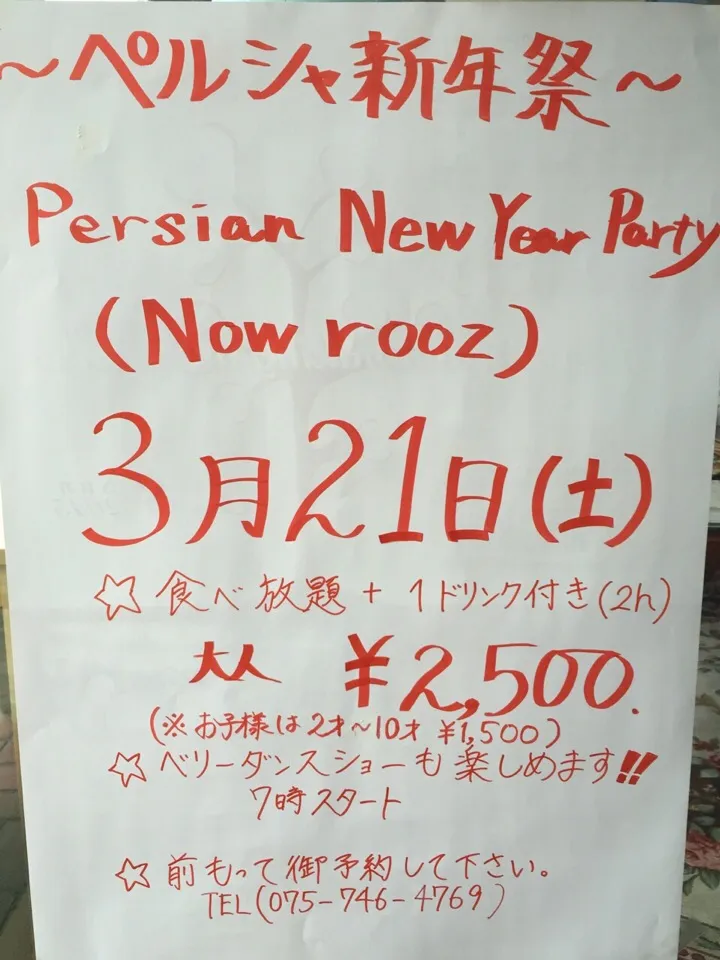 ～ペルシャ新年祭～
Persian New Year Party
(Now rooz)
3月21日(土)
☆ 食べ放題 + 1ドリンク付き(2h)
大人 ¥2,500.
(※お子様は2才～10才 ¥1,500)
☆ ベリーダンスショーも楽しめます!!
7時スタート
☆ 前もって御予約して下さい。
TEL(075-746-4769)